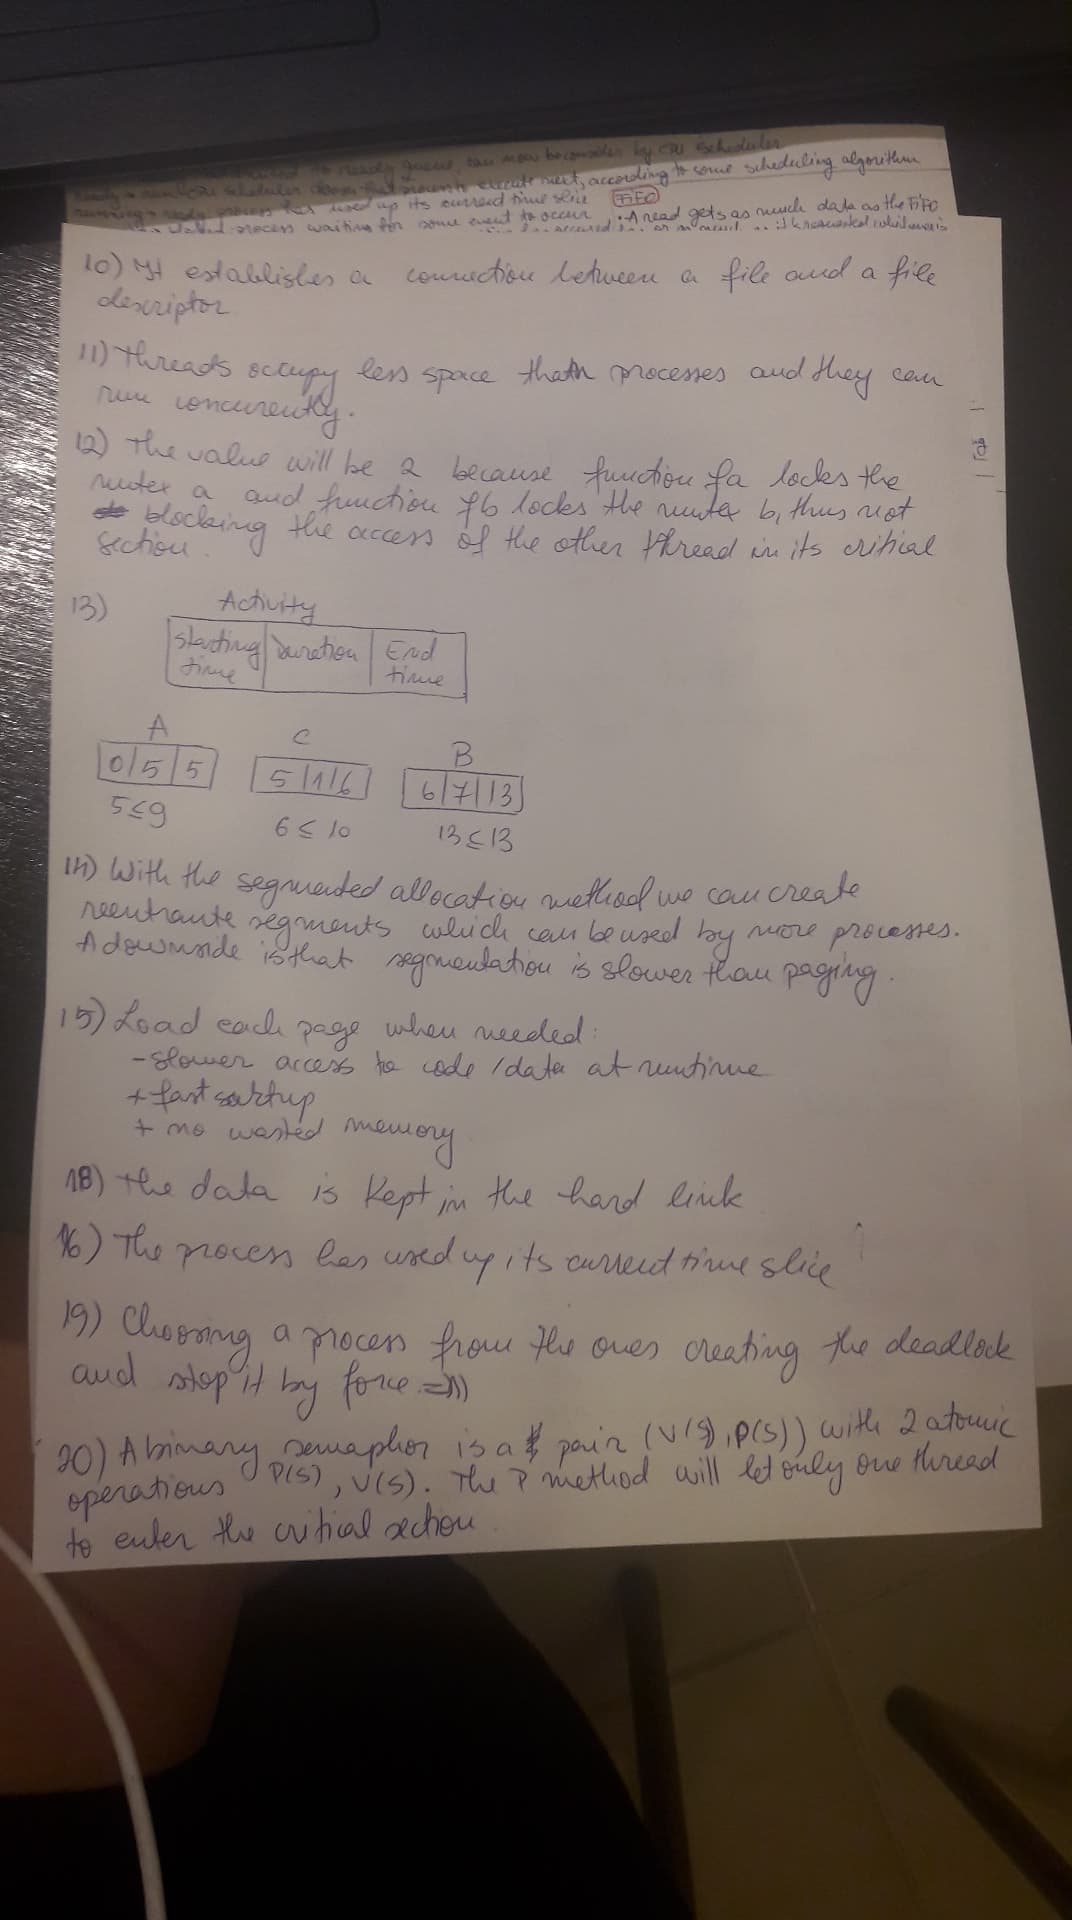 to ready queue, can now be consider by CPU scheduler
scheduler chose that process to execute next, according to some scheduling algorithm
running → ready process has used up its current time slice FIFO
process waiting for some event to occur . A read gets as much data as the FIFO
10) It establishes a connection between a file and a file
descriptor
11) Threads occupy less space thatn processes and they can
run concurently.
12) The value will be 2 because function fa locks the
mutex a and function fb locks the mutex b, thus not
blocking the access of the other thread in its critical
section.
13) Activity
starting time | Duration | End time
A C B
0 | 5 | 5 5 | 1 | 6 6 | 7 | 13
5≤9 6≤10 13≤13
14) With the segmented allocation method we can create
reentrante segments which can be used by more processes.
A downside is that segmentation is slower than paging.
15) Load each page when needed:
- slower access to code / data at runtime
+ fast sartup
+ no wasted memory
18) The data is kept in the hard link
16) The process has used up its current time slice
19) Choosing a process from the ones creating the deadlock
and stop it by force =)))
20) A binary semaphor is a pair (V(S), P(S)) with 2 atomic
operations P(S), V(S). The P method will let only one thread
to enter the critical section.